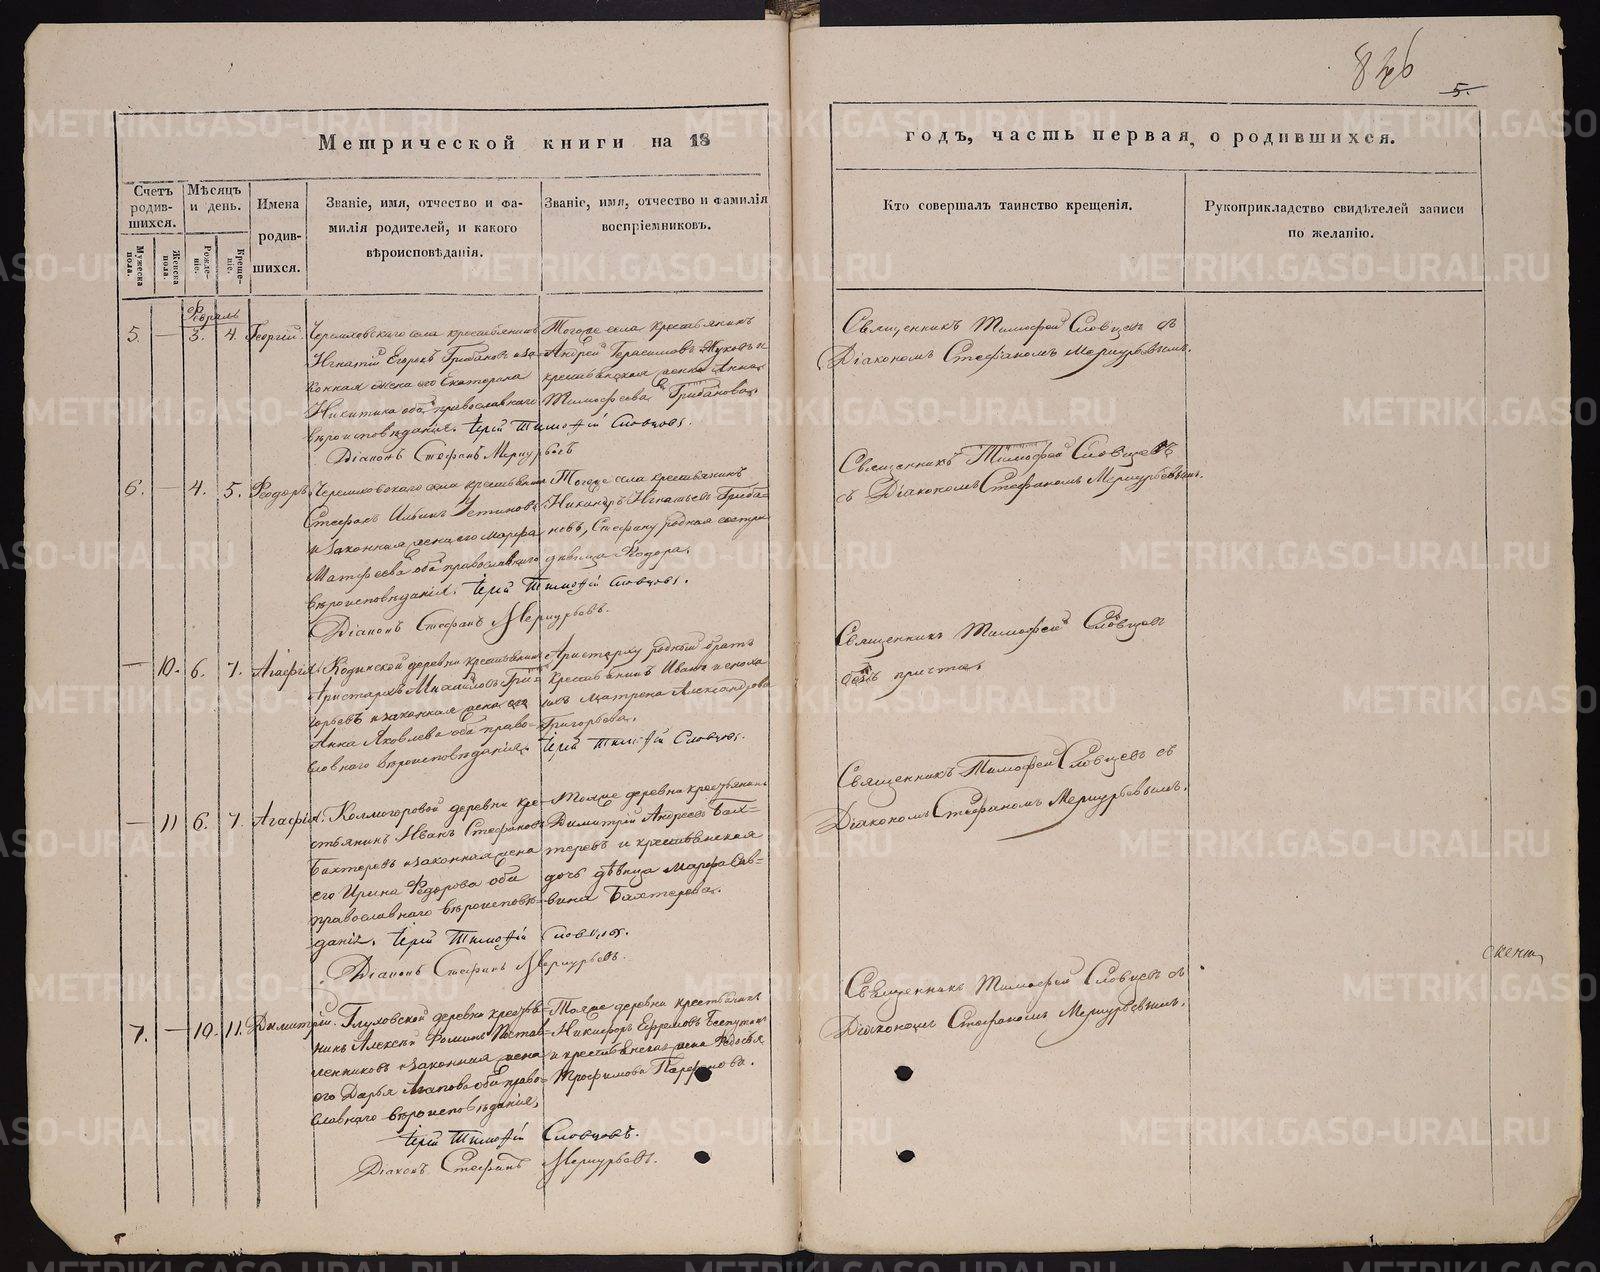 836
5.
Метрической книги на 18
годъ, часть первая, о родившихся.
Счетъ родив-шихся.
Мѣсяцъ и день.
Имена родив-шихся.
Званіе, имя, отчество и фа-
милія родителей, и какого
вѣроисповѣданія.
Званіе, имя, отчество и фамилія
воспріемниковъ.
Кто совершалъ таинство крещенія.
Рукоприкладство свидѣтелей записи
по желанію.
Мужеска пола.
Женска пола.
Рожде-ніе.
Креще-ніе.
Февраль
5. — 3. 4. Георгій.
Черемховскаго села крестьянинъ
Игнатій Егоровъ Грибановъ и за-
конная жена его Екатерина
Никитина оба православнаго
вѣроисповѣданія. Іерей Тимофій Словцовъ.
Діаконъ Стефанъ Меркурьевъ
Тогоже села крестьянинъ
Андрей Герасимовъ Жуковъ и
крестьянская жена Анна
Тимофеева Грибанова.
Священникъ Тимофей Словцевъ съ
Діакономъ Стефаномъ Меркурьевымъ.
6. — 4. 5. Феодоръ.
Черемховскаго села крестьянинъ
Стефанъ Ильинъ Устиновъ
и законная жена его Марфа
Матфеева оба православнаго
вѣроисповѣданія. Іерей Тимофій Словцовъ.
Діаконъ Стефанъ Меркурьевъ.
Тогоже села крестьянинъ
Никандръ Игнатьевъ Гриба-
новъ, Стефану родная сестра
дѣвица Феодора.
Священникъ Тимофей Словцевъ
съ Діакономъ Стефаномъ Меркурьевымъ.
— 10. 6. 7. Агафія.
Кодинской деревни крестьянинъ
Аристархъ Михайловъ Гри-
горьевъ и законная жена его
Анна Яковлева оба право-
славнаго вѣроисповѣданія. Іерей Тимофій Словцовъ.
Аристарху родный братъ
крестьянинъ Иванъ и сноха
Матрена Александрова
Григорьева.
Священникъ Тимофей Словцевъ
безъ причта
— 11 6. 7. Агафія.
Колмогоровой деревни кре-
стьянинъ Иванъ Стефановъ
Бахтеревъ и законная жена
его Ирина Федорова оба
православнаго вѣроисповѣ-
данія. Іерей Тимофій Словцовъ.
Діаконъ Стефанъ Меркурьевъ.
Тояже деревни крестьянинъ
Димитрій Андреевъ Бах-
теревъ и крестьянская
дочь дѣвица Марфа Сав-
вина Бахтерева.
Священникъ Тимофей Словцевъ съ
Діакономъ Стефаномъ Меркурьевымъ.
7. — 10. 11. Димитрій.
Глуховской деревни крестья-
нинъ Алексѣй Фоминъ Постав-
ленниковъ и законная жена
его Дарья Агапова оба право-
славнаго вѣроисповѣданія.
Іерей Тимофій Словцовъ.
Діаконъ Стефанъ Меркурьевъ.
Тояже деревни крестьянинъ
Никифоръ Ефремовъ
и крестьянская жена Федосья
Трофимова Парфенова.
Священникъ Тимофей Словцевъ съ
Діакономъ Стефаномъ Меркурьевымъ.
METRIKI.GASO-URAL.RU